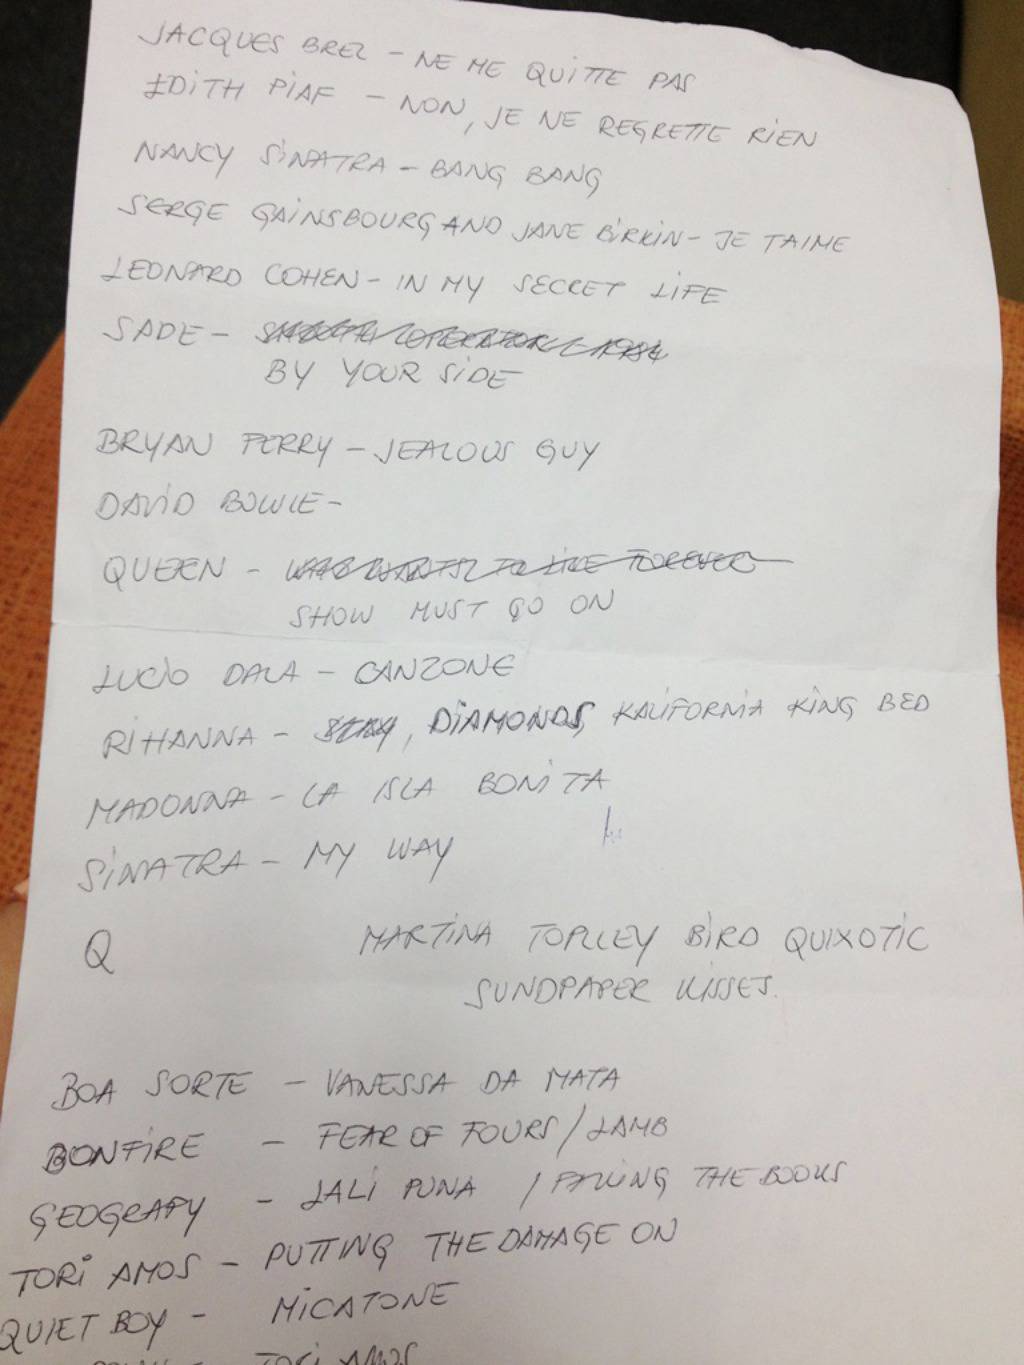 JACQUES BREL - NE ME QUITTE PAS
EDITH PIAF - NON, JE NE REGRETTE RIEN
NANCY SINATRA - BANG BANG
SERGE GAINSBOURG AND JANE BIRKIN - JE TAIME
LEONARD COHEN - IN MY SECRET LIFE
SADE - SMOOTH OPERATOR - 1984
BY YOUR SIDE
BRYAN FERRY - JEALOUS GUY
DAVID BOWIE -
QUEEN - WHO WANTS TO LIVE FOREVER
SHOW MUST GO ON
LUCIO DALA - CANZONE
RIHANNA - STAY, DIAMONDS, KALIFORNIA KING BED
MADONNA - LA ISLA BONITA
SINATRA - MY WAY
Q MARTINA TOPLLEY BIRD QUIXOTIC
SUNDPAPER KISSES.
BOA SORTE - VANESSA DA MATA
BONFIRE - FEAR OF FOURS / LAMB
GEOGRAPY - LALI PUNA / THE BOOKS
TORI AMOS - PUTTING THE DAMAGE ON
QUIET BOY - MICATONE
TORI AMOS